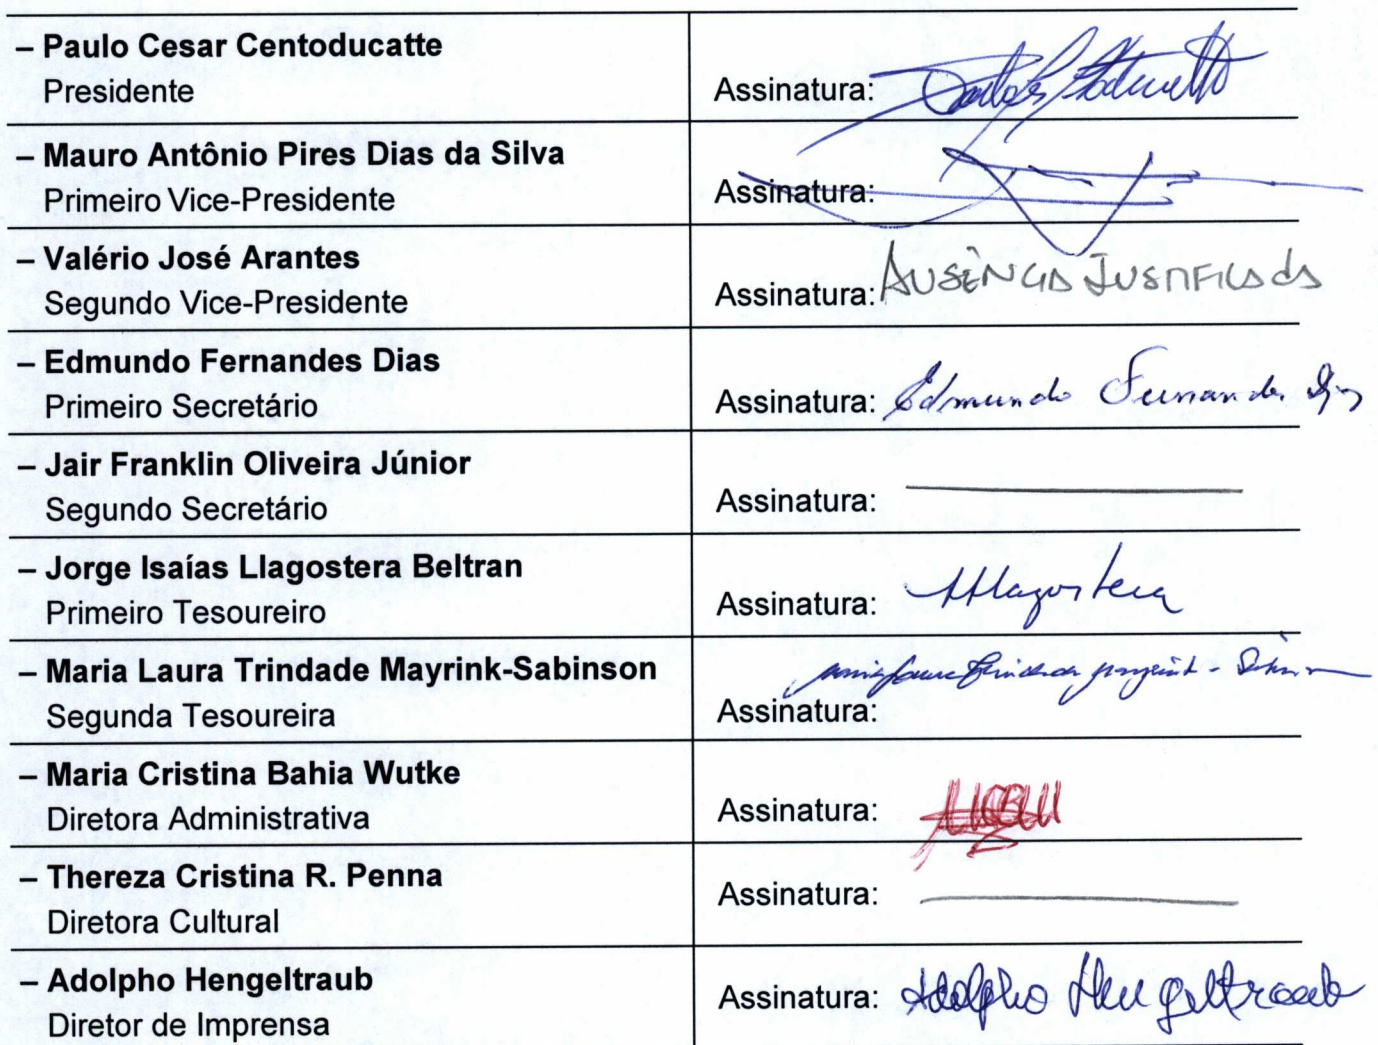 – Paulo Cesar Centoducatte
Presidente
Assinatura:
– Mauro Antônio Pires Dias da Silva
Primeiro Vice-Presidente
Assinatura:
– Valério José Arantes
Segundo Vice-Presidente
Assinatura: AUSÊNCIA JUSTIFICADA
– Edmundo Fernandes Dias
Primeiro Secretário
Assinatura: Edmundo Fernandes Dias
– Jair Franklin Oliveira Júnior
Segundo Secretário
Assinatura:
– Jorge Isaías Llagostera Beltran
Primeiro Tesoureiro
Assinatura: Llagostera
– Maria Laura Trindade Mayrink-Sabinson
Segunda Tesoureira
Assinatura: Maria Laura Trindade Mayrink-Sabinson
– Maria Cristina Bahia Wutke
Diretora Administrativa
Assinatura:
– Thereza Cristina R. Penna
Diretora Cultural
Assinatura:
– Adolpho Hengeltraub
Diretor de Imprensa
Assinatura: Adolpho Hengeltraub